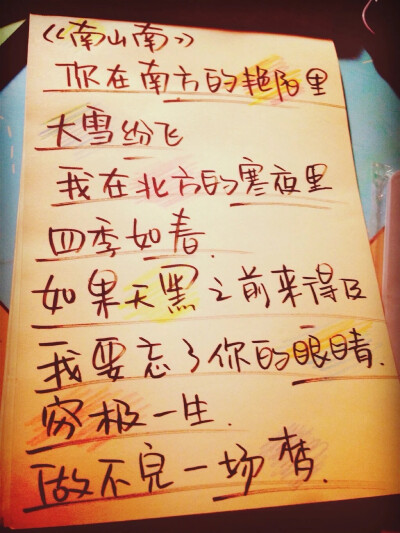 《南山南》
你在南方的艳阳里
大雪纷飞
我在北方的寒夜里
四季如春.
如果天黑之前来得及
我要忘了你的眼睛.
穷极一生.
做不完一场梦.